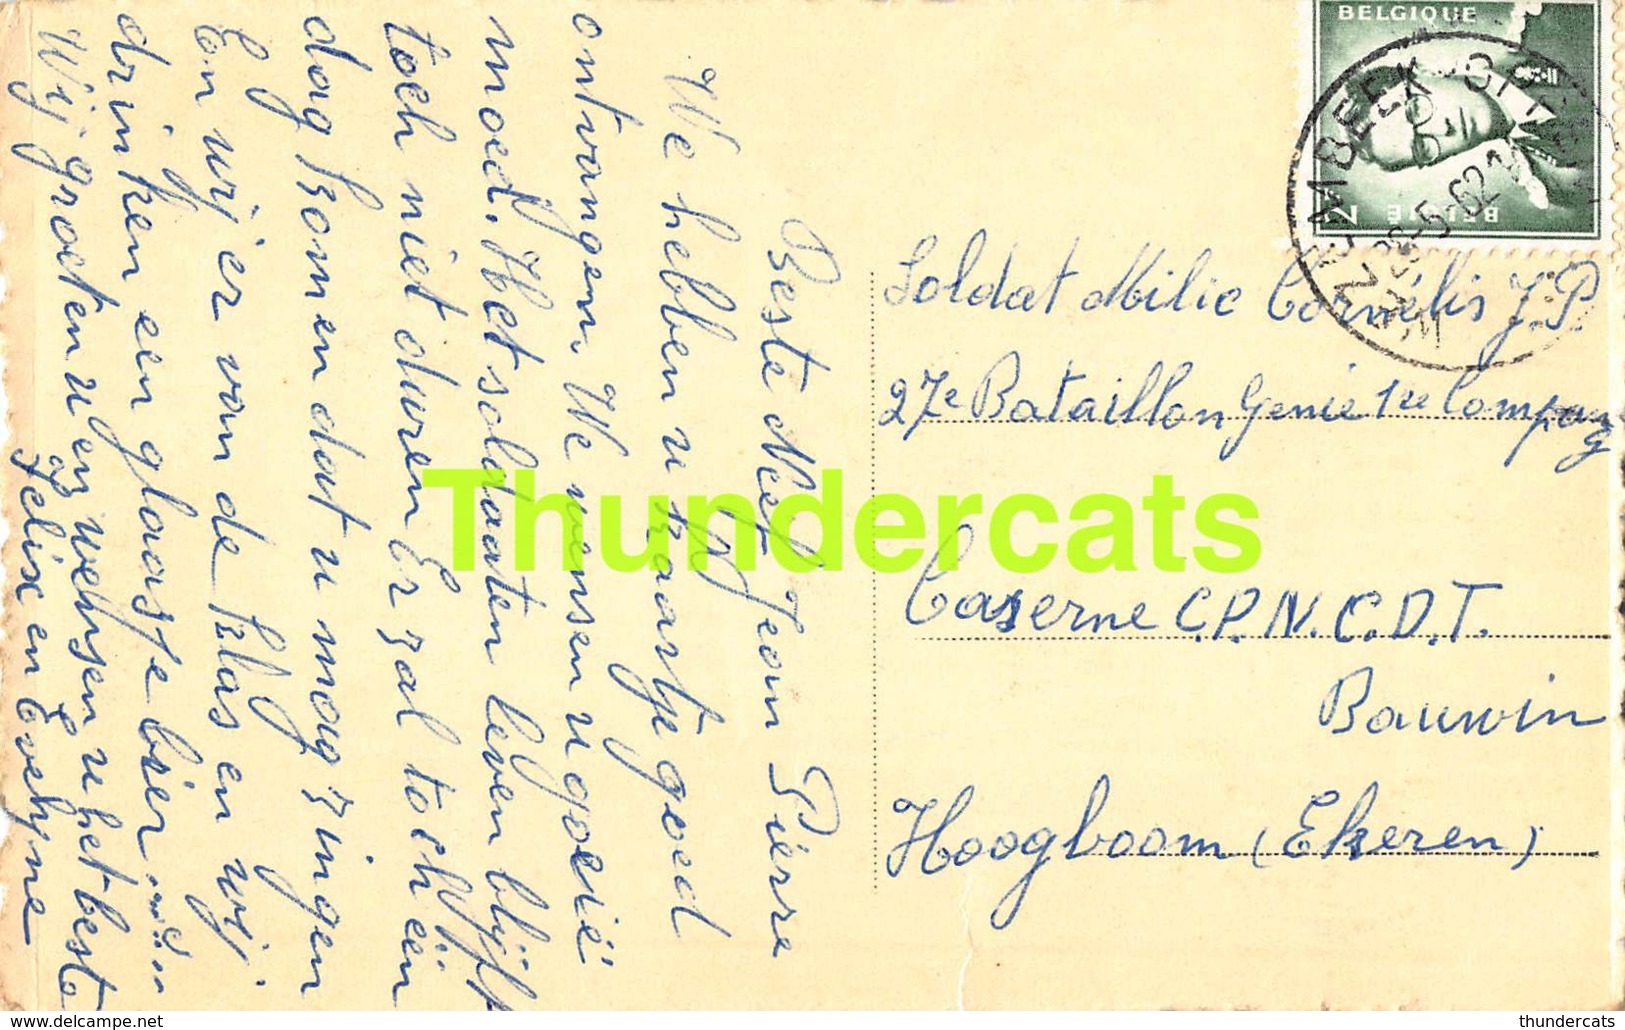 Beste Neef Jean Piérre
We hebben u kaartje goed
ontvangen. We wensen u goeië
moed. Het soldaaten leven blijft
toch niet duren Er zal toch een
dag komen dat u mag zingen
En wij er van de klas en wij
drinken een glaasje bier
Wij groeten u en wensen u het beste
Felix en Evelyne
BELGIQUE
BELGIE
28-5-62
Soldat Milic Cornélis J.P.
27e Bataillon Genie 1re Compag
Caserne C.P.N.C.D.T.
Bauwin
Hoogboom (Ekeren)
Thundercats
www.delcampe.net
thundercats